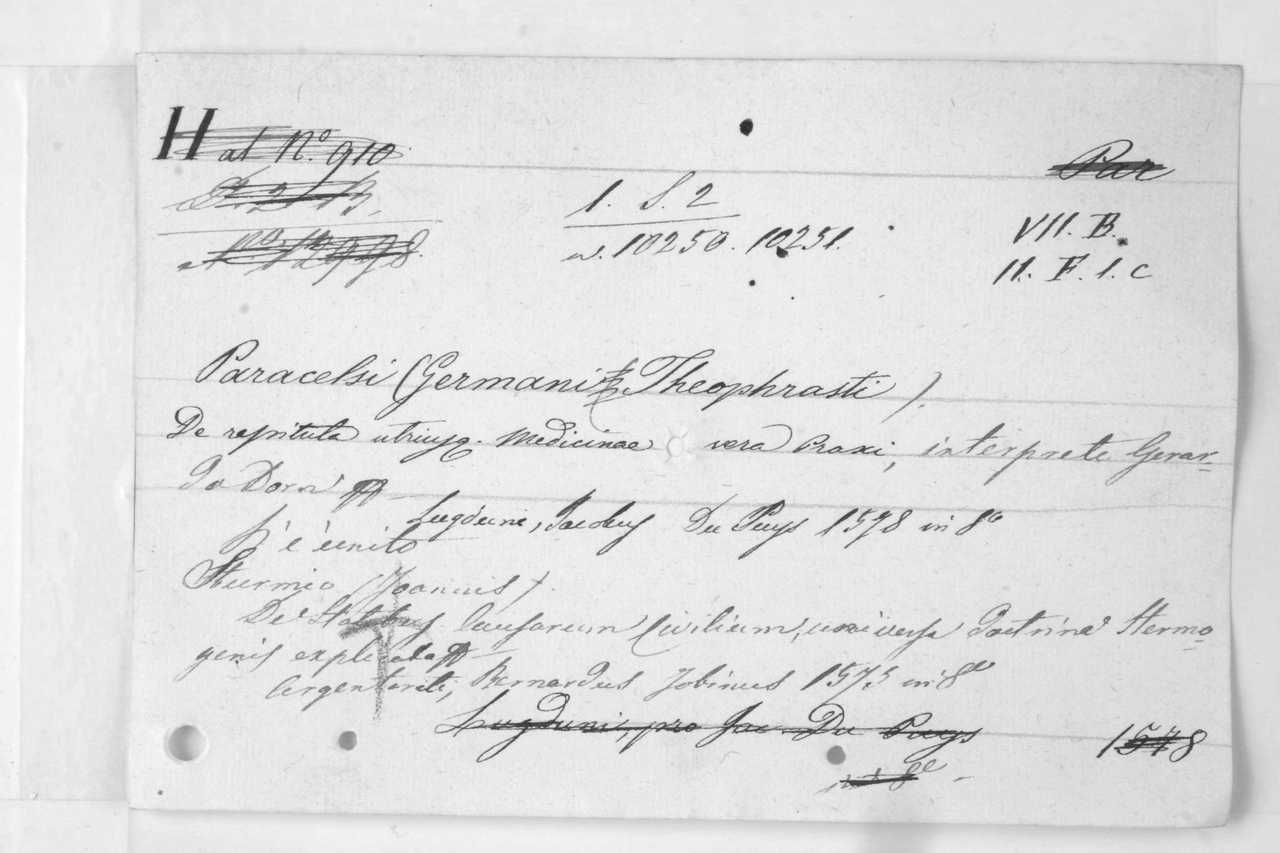 H at N.º 910
1. S. 2
10250. 10251.
Par
VII. B.
II. F. 1. c
Paracelsi (Germani Theophrasti).
De repituta utriusq. Medicinae vera Praxi, interprete Gerar-
do Dorn
Lugduni, Jacobus Du Puys 1578 in 8º
è unito
Sturmio (Joannis).
De Statibus Causarum Civilium, universa doctrina Hermo-
genis explicata
Argentorati, Bernardus Jobinus 1575 in 8º
Lugduni, pro Jac. Du Puys